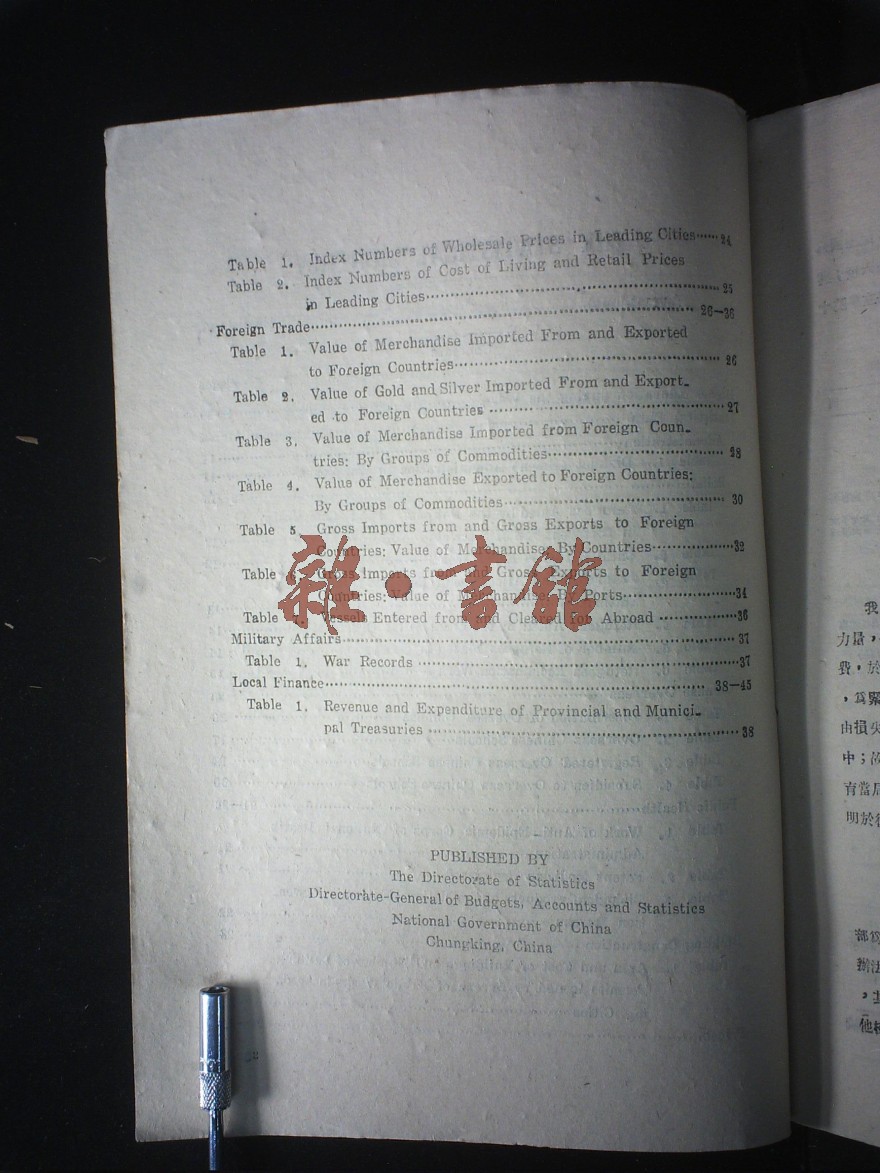 Table 1. Index Numbers of Wholesale Prices in Leading Cities······24
Table 2. Index Numbers of Cost of Living and Retail Prices
in Leading Cities······25
Foreign Trade······26—36
Table 1. Value of Merchandise Imported From and Exported
to Foreign Countries······26
Table 2. Value of Gold and Silver Imported From and Export-
ed to Foreign Countries······27
Table 3. Value of Merchandise Imported from Foreign Coun-
tries: By Groups of Commodities······28
Table 4. Value of Merchandise Exported to Foreign Countries:
By Groups of Commodities······30
Table 5. Gross Imports from and Gross Exports to Foreign
Countries: Value of Merchandise: By Countries······32
Table 6. Gross Imports from and Gross Exports to Foreign
Countries: Value of Merchandise: By Ports······34
Table 7. Vessels Entered from and Cleared for Abroad······36
Military Affairs······37
Table 1. War Records······37
Local Finance······38—45
Table 1. Revenue and Expenditure of Provincial and Munici-
pal Treasuries······38
PUBLISHED BY
The Directorate of Statistics
Directorate-General of Budgets, Accounts and Statistics
National Government of China
Chungking, China
雜·書館
我
力量，
費，於
，爲緊
由損失
中；
育當局
明於
辦法
，
他